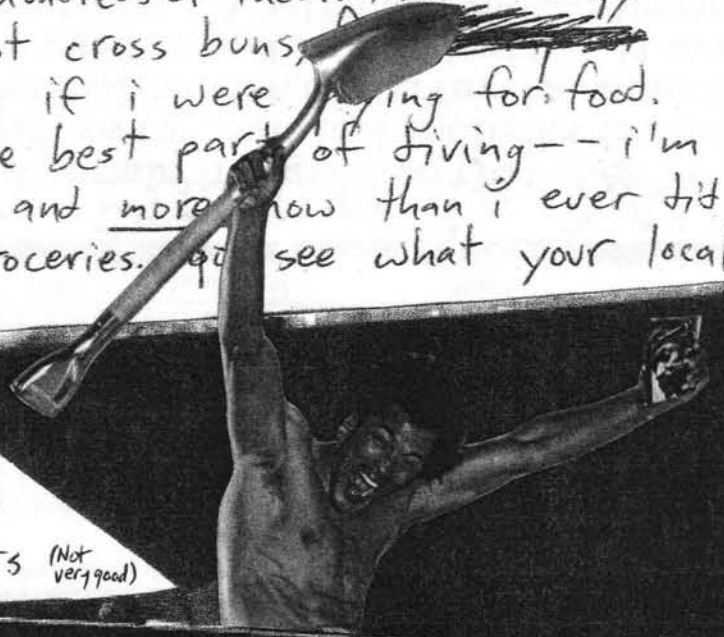 t cross buns,
if i were ing for food.
e best part of diving-- i'm
and more now than i ever did
roceries. go see what your local
(Not
very good)